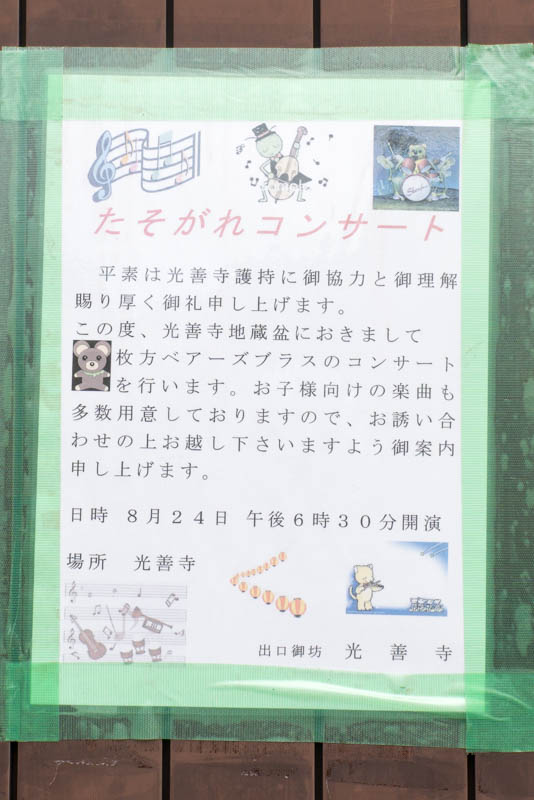 たそがれコンサート
平素は光善寺護持に御協力と御理解
賜り厚く御礼申し上げます。
この度、光善寺地蔵盆におきまして
枚方ベアーズブラスのコンサート
を行います。お子様向けの楽曲も
多数用意しておりますので、お誘い合
わせの上お越し下さいますよう御案内
申し上げます。
日時 8月24日 午後6時30分開演
場所 光善寺
出口御坊 光善寺